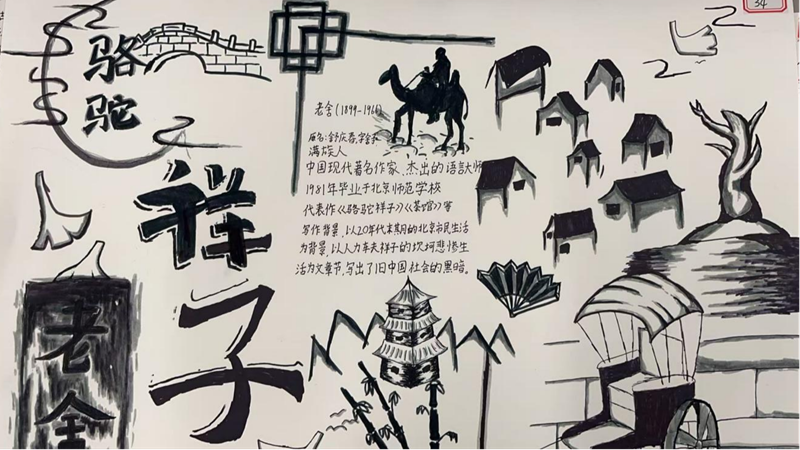 34
骆
驼
祥
子
老
舍
老舍(1899-1966)
原名:舒庆春,字舍予
满族人
中国现代著名作家、杰出的语言大师
1981年毕业于北京师范学校
代表作《骆驼祥子》《茶馆》等
写作背景,以20年代末期的北京市民生活
为背景,以人力车夫祥子的坎坷悲惨生
活为文章节,写出了旧中国社会的黑暗。